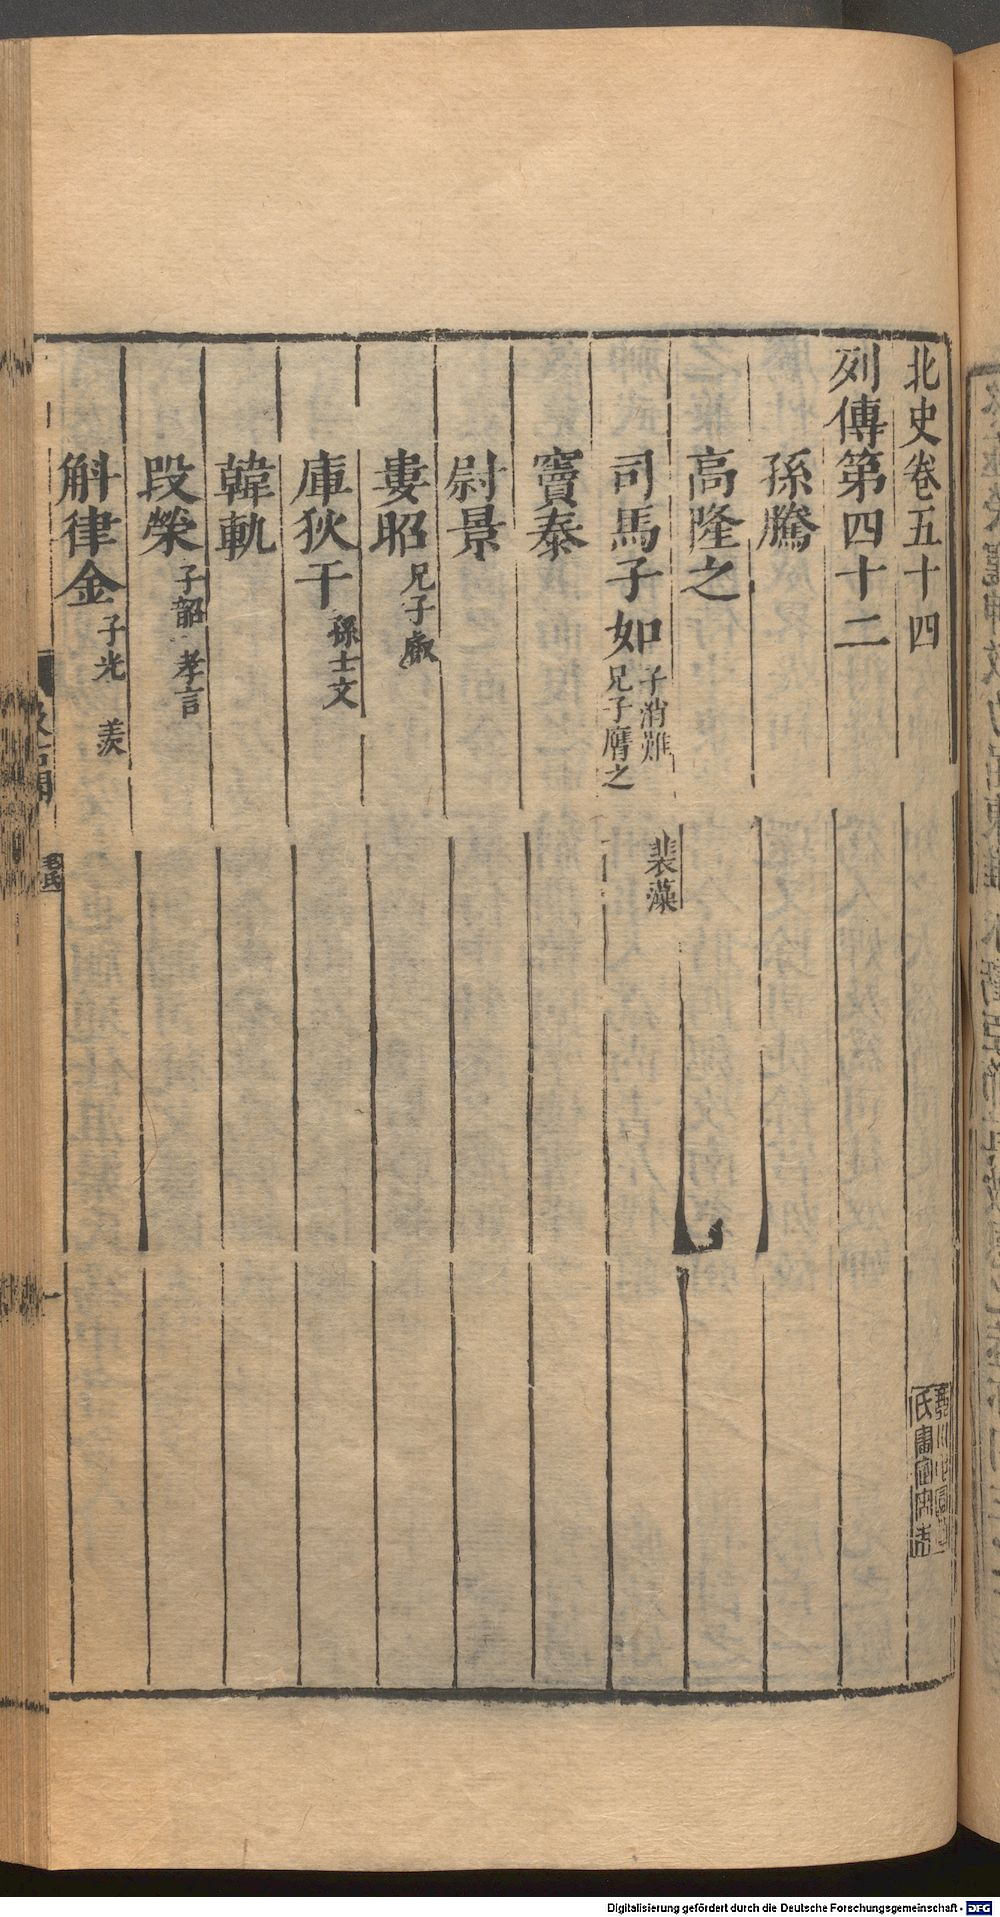 北史卷五十四
列傳第四十二
孫騰
高隆之
司馬子如 子消難 裴藻
兄子膺之
竇泰
尉景
婁昭 兄子叡
庫狄干 孫士文
韓軌
段榮 子韶 孝言
斛律金 子光 羨
毛氏
Digitalisierung gefördert durch die Deutsche Forschungsgemeinschaft - DFG